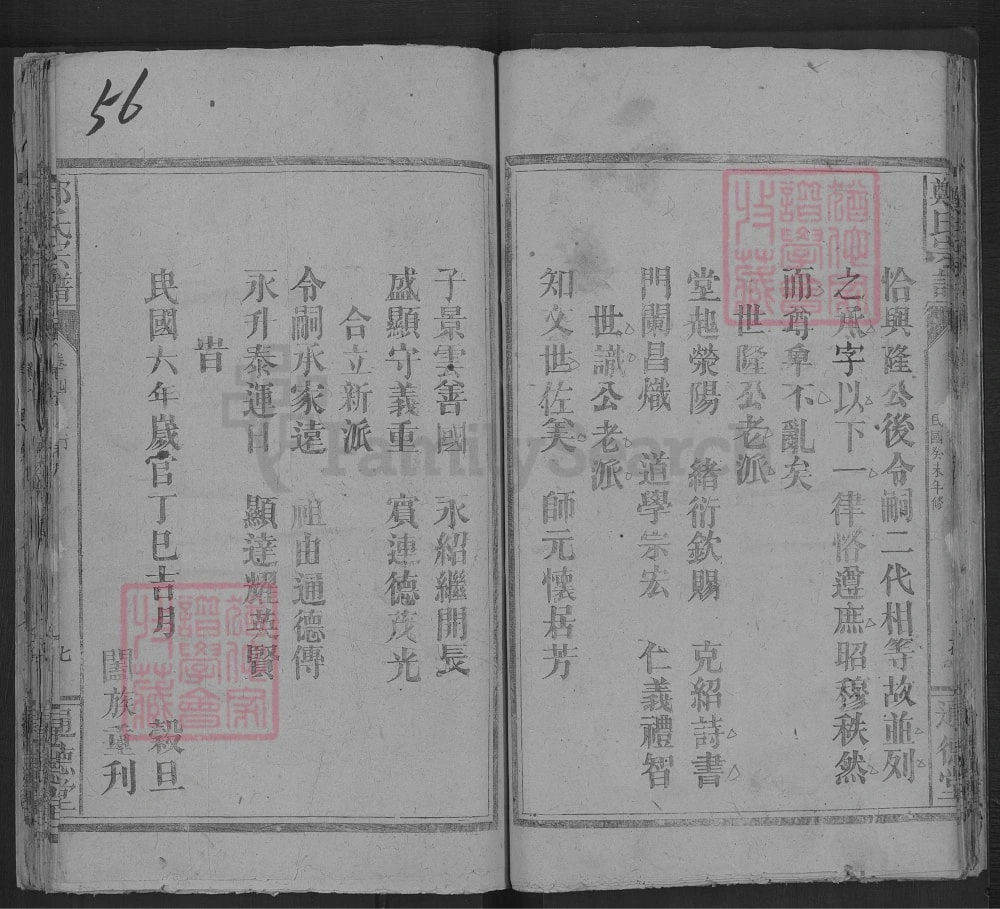 鄭氏宗譜
民國癸未年修
恰與隆公後令嗣二代相等故並列
之承字以下一律恪遵庶昭穆秩然
而尊卑不亂矣
世隆公老派
堂起滎陽 緒衍欽賜 克紹詩書
門闌昌熾 道學宗宏 仁義禮智
世識公老派
知文世佐美 師元懷居芳
子景雲善國 永紹繼開長
盛顯守義重 賓連德茂光
合立新派
令嗣承家遠 祖由通德傳
永升泰運日 顯達耀英賢
旹
民國六年歲官丁巳吉月 穀旦
闔族重刊
氏宗譜
通德堂
56
FamilySearch
譜學會
收藏